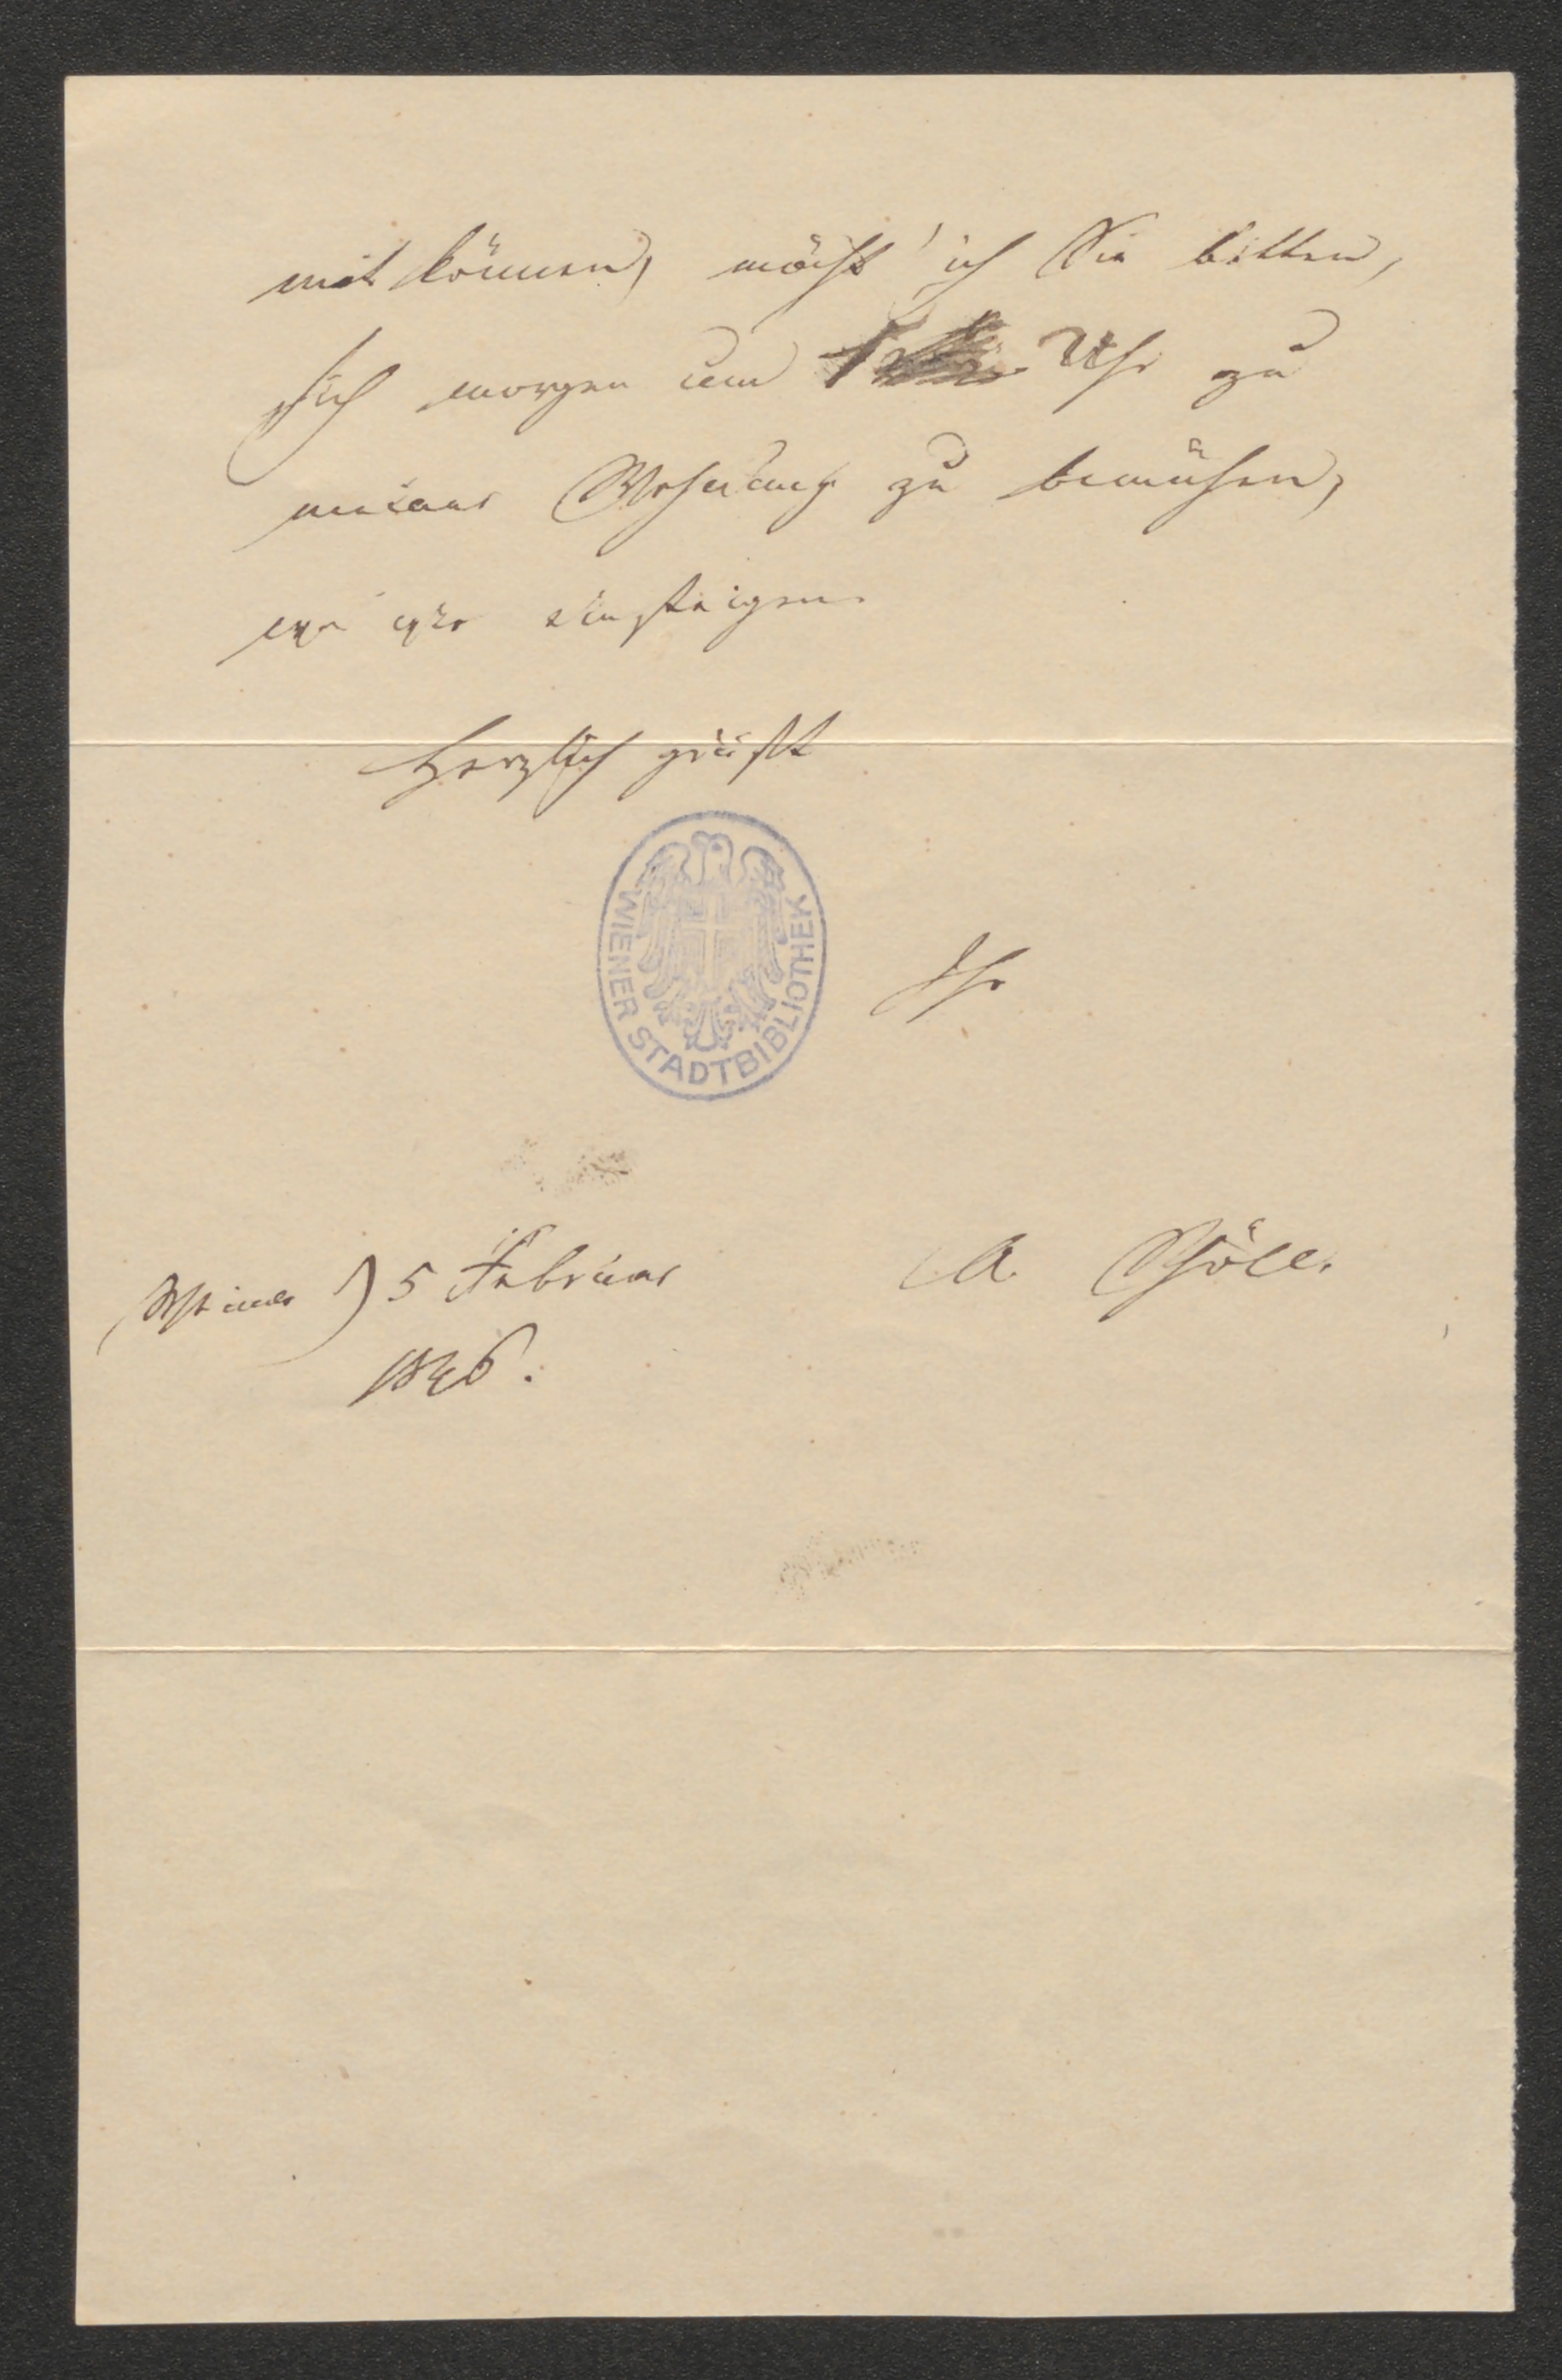 mit können, möcht' ich Sie bitten,
sich morgen um 1 Uhr zu
meiner Wohnung zu bemühen,
wo wir einsteigen.
Herzlich grüßt
WIENER STADTBIBLIOTHEK
Ihr
Weimar 5 Februar
A. Schöll.
1846.